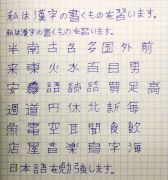 私は漢字の書くものを習います。
私は漢字の書くものを習います。
半南古名多国外前
来東火水百目男
安 語読買足高
週道円休北新毎
魚電空耳間食飲
店屋音楽 字海
日本語を勉強します。